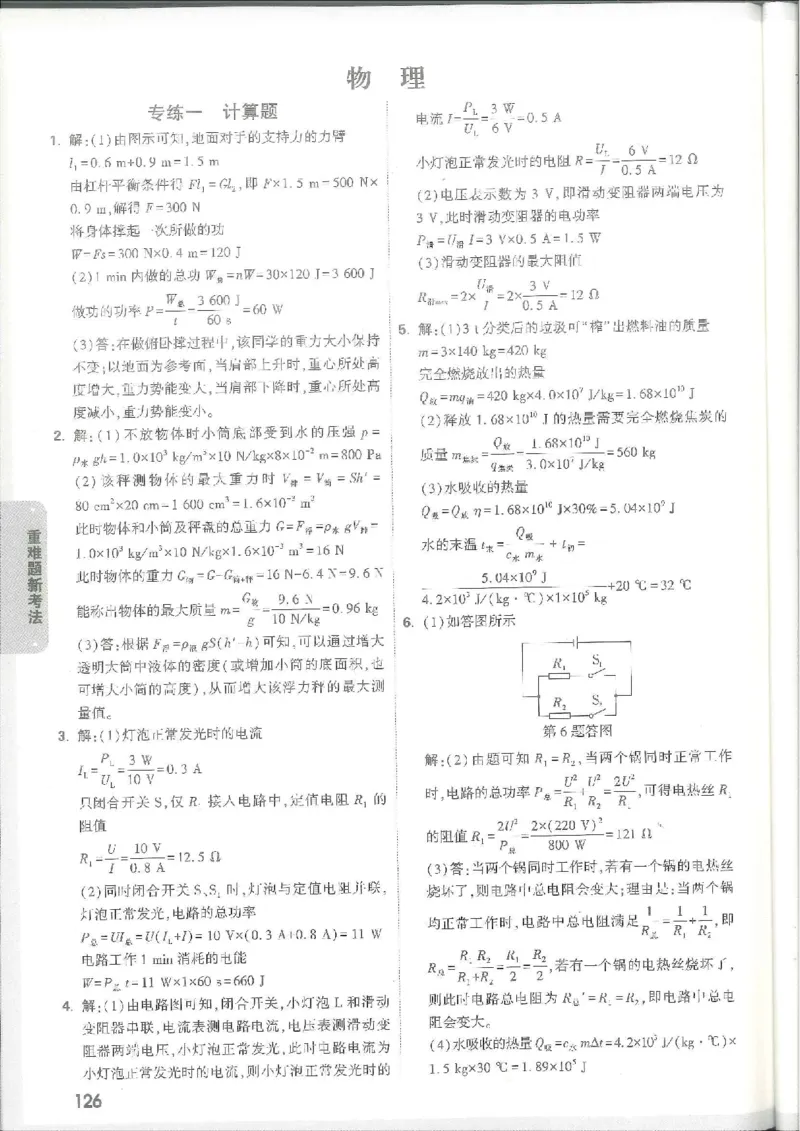 物 理
专练一 计算题
1. 解:(1)由图示可知,地面对手的支持力的力臂
l₁=0.6 m+0.9 m=1.5 m
由杠杆平衡条件得 Fl₁=Gl₂,即 F×1.5 m=500 N×
0.9 m,解得 F=300 N
将身体撑起一次所做的功
W=Fs=300 N×0.4 m=120 J
(2)1 min 内做的总功 W总=nW=30×120 J=3 600 J
做功的功率 P=W总/t=3 600 J/60 s=60 W
(3)答:在做俯卧撑过程中,该同学的重力大小保持
不变;以地面为参考面,当肩部上升时,重心所处高
度增大,重力势能变大,当肩部下降时,重心所处高
度减小,重力势能变小。
2. 解:(1)不放物体时小筒底部受到水的压强 p=
ρ水gh=1.0×10³ kg/m³×10 N/kg×8×10⁻² m=800 Pa
(2)该秤测物体的最大重力时 V排=V筒=Sh'=
80 cm²×20 cm=1 600 cm³=1.6×10⁻³ m³
此时物体和小筒及秤盘的总重力 G=F浮=ρ水gV排=
1.0×10³ kg/m³×10 N/kg×1.6×10⁻³ m³=16 N
此时物体的重力 G物=G-G筒+秤=16 N-6.4 N=9.6 N
能称出物体的最大质量 m=G物/g=9.6 N/10 N/kg=0.96 kg
(3)答:根据 F浮=ρ液gS(h'-h)可知,可以通过增大
透明大筒中液体的密度(或增加小筒的底面积,也
可增大小筒的高度),从而增大该浮力秤的最大测
量值。
3. 解:(1)灯泡正常发光时的电流
I_L=P_L/U_L=3 W/10 V=0.3 A
只闭合开关 S,仅 R₁ 接入电路中,定值电阻 R₁ 的
阻值
R₁=U/I=10 V/0.8 A=12.5 Ω
(2)同时闭合开关 S、S₁ 时,灯泡与定值电阻并联,
灯泡正常发光,电路的总功率
P总=UI总=U(I_L+I)=10 V×(0.3 A+0.8 A)=11 W
电路工作 1 min 消耗的电能
W=P总t=11 W×1×60 s=660 J
4. 解:(1)由电路图可知,闭合开关,小灯泡 L 和滑动
变阻器串联,电流表测电路电流,电压表测滑动变
阻器两端电压,小灯泡正常发光,此时电路电流为
小灯泡正常发光时的电流,则小灯泡正常发光时的
电流 I=P_L/U_L=3 W/6 V=0.5 A
小灯泡正常发光时的电阻 R=U_L/I=6 V/0.5 A=12 Ω
(2)电压表示数为 3 V,即滑动变阻器两端电压为
3 V,此时滑动变阻器的电功率
P滑=U滑I=3 V×0.5 A=1.5 W
(3)滑动变阻器的最大阻值
R滑max=2×U滑/I=2×3 V/0.5 A=12 Ω
5. 解:(1)3 t 分类后的垃圾可“榨”出燃料油的质量
m=3×140 kg=420 kg
完全燃烧放出的热量
Q放=mq油=420 kg×4.0×10⁷ J/kg=1.68×10¹⁰ J
(2)释放 1.68×10¹⁰ J 的热量需要完全燃烧焦炭的
质量 m焦炭=Q放/q焦炭=1.68×10¹⁰ J/3.0×10⁷ J/kg=560 kg
(3)水吸收的热量
Q吸=Q放η=1.68×10¹⁰ J×30%=5.04×10⁹ J
水的末温 t末=Q吸/c水m水+t初=
5.04×10⁹ J/4.2×10³ J/(kg·℃)×1×10⁵ kg+20 ℃=32 ℃
6. (1)如答图所示
R₁ S₁
R₂ S₂
第 6 题答图
解:(2)由题可知 R₁=R₂,当两个锅同时正常工作
时,电路的总功率 P总=U²/R₁+U²/R₂=2U²/R₁,可得电热丝 R₁
的阻值 R₁=2U²/P总=2×(220 V)²/800 W=121 Ω
(3)答:当两个锅同时工作时,若有一个锅的电热丝
烧坏了,则电路中总电阻会变大;理由是:当两个锅
均正常工作时,电路中总电阻满足 1/R总=1/R₁+1/R₂,即
R总=R₁R₂/R₁+R₂=R₁/2=R₂/2,若有一个锅的电热丝烧坏了,
则此时电路总电阻为 R总'=R₁=R₂,即电路中总电
阻会变大。
(4)水吸收的热量 Q吸=c水mΔt=4.2×10³ J/(kg·℃)×
1.5 kg×30 ℃=1.89×10⁵ J
重难题新考法
126